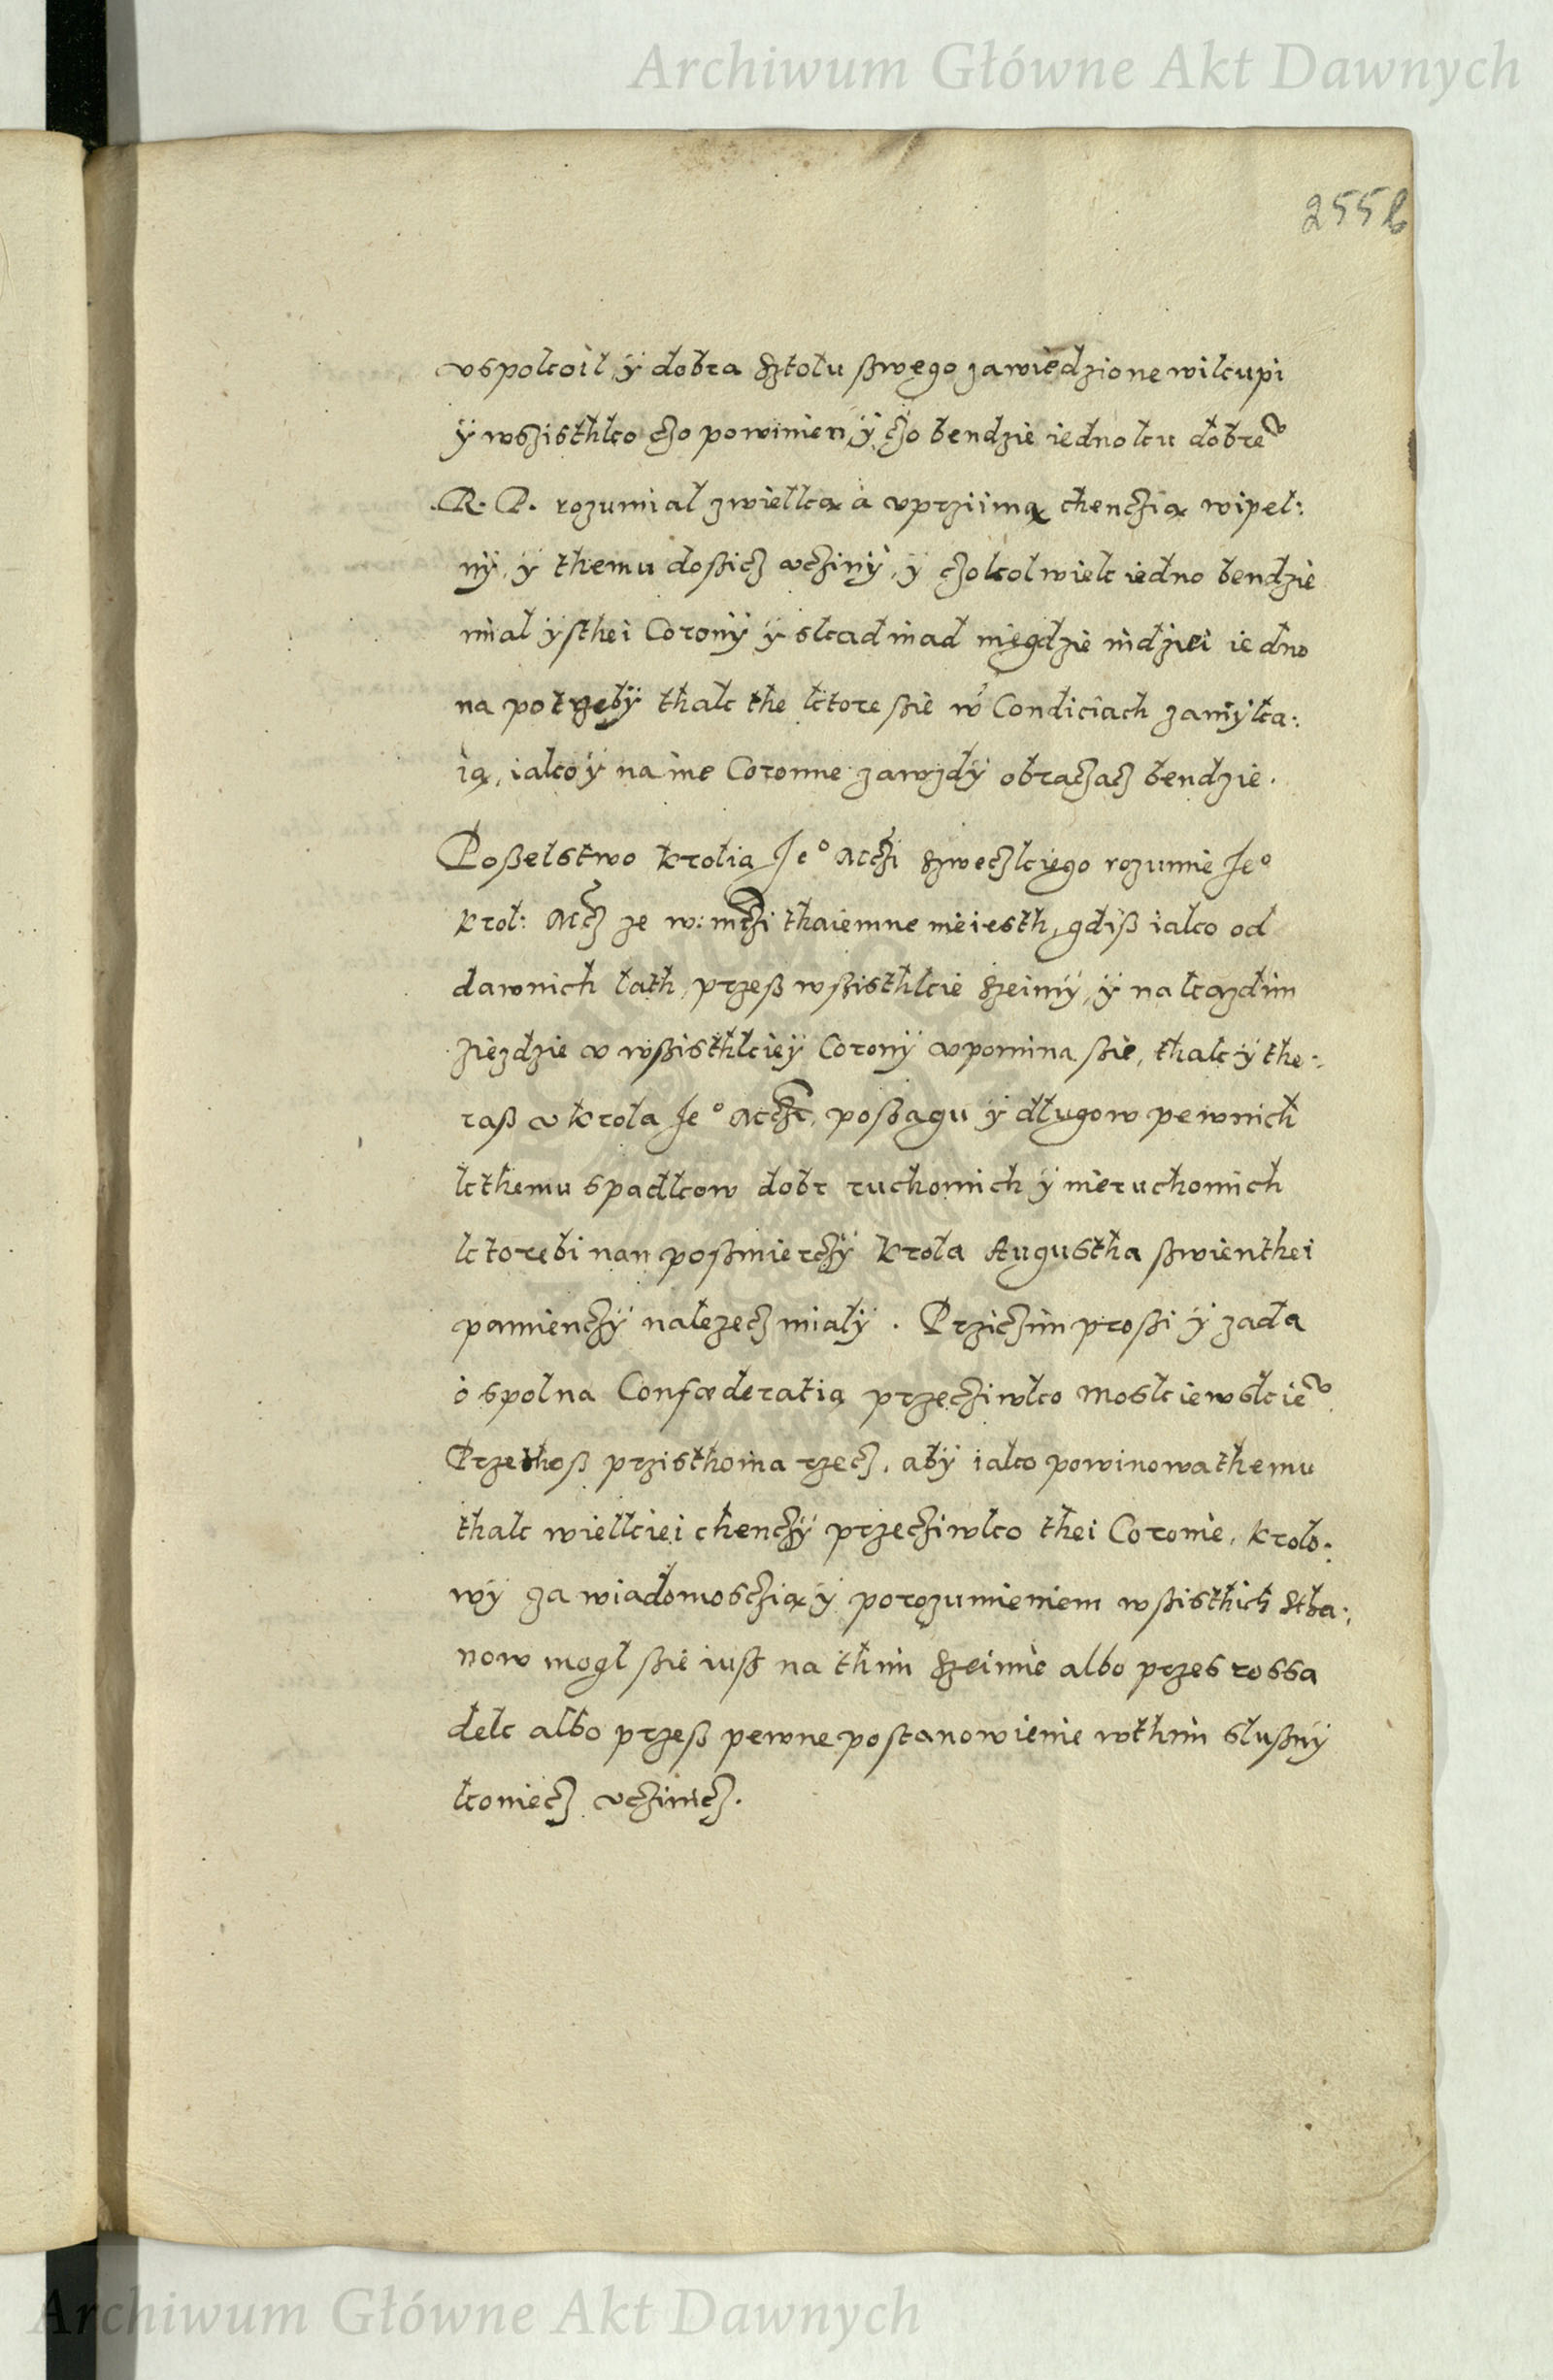 Archiwum Główne Akt Dawnych
255b
uspokoil ÿ dobra sztolu ßwęgo zawiedzione wikupi
ÿ wszisthko czo powinien, ÿ czo bendzie iedno ku dobre͠v
R. P. rozumial z wielką à uprziimą chenczią wipel:
nÿ, ÿ themu doßicz uczinÿ, ÿ czokolwiek iedno bendzie
mial ÿ sthei Coronÿ ÿ skad inad niegdzie indziei iedno
na potrzebÿ thak the ktore ßie w Condiciach zamÿka:
ią, iako ÿ na ine Coronne zawzdÿ obraczacz bendzie.
Poßelstwo krolia Jeº Mczi Szweczkiego rozumie Jeº
krol: Mcz ze w: mczi thaiemne nie iesth, gdiß iako od
dawnich lath, przeß wßisthkie szeimÿ, ÿ na kazdim
ziezdzie u wßisthkieÿ Coronÿ upomina ßie, thak ÿ the:
raß u krola Jeº Mczi, poßagu ÿ długow pewnich
kthemu spadkow dobr ruchomich ÿ nieruchomich
ktorebi nan po ßmierczÿ krola Augustha ßwienthei
pamienczÿ nalezecz mialÿ. Prziczim proßi ÿ zada
ò spolna Confœderatią przecziwko Moskiewskie͠v.
Przethoß przisthoina rzecz, abÿ iako powinowathemu
thak wielkiei chenczÿ przecziwko thei Coronie, krolo:
wÿ za wiadomosczią ÿ porozumieniem wßisthich stha:
now mogl ßie iuß na thim szeimie albo przes rossa
dek albo przeß pewne postanowienie w thim slußnÿ
koniecz uczinicz.
Archiwum Główne Akt Dawnych